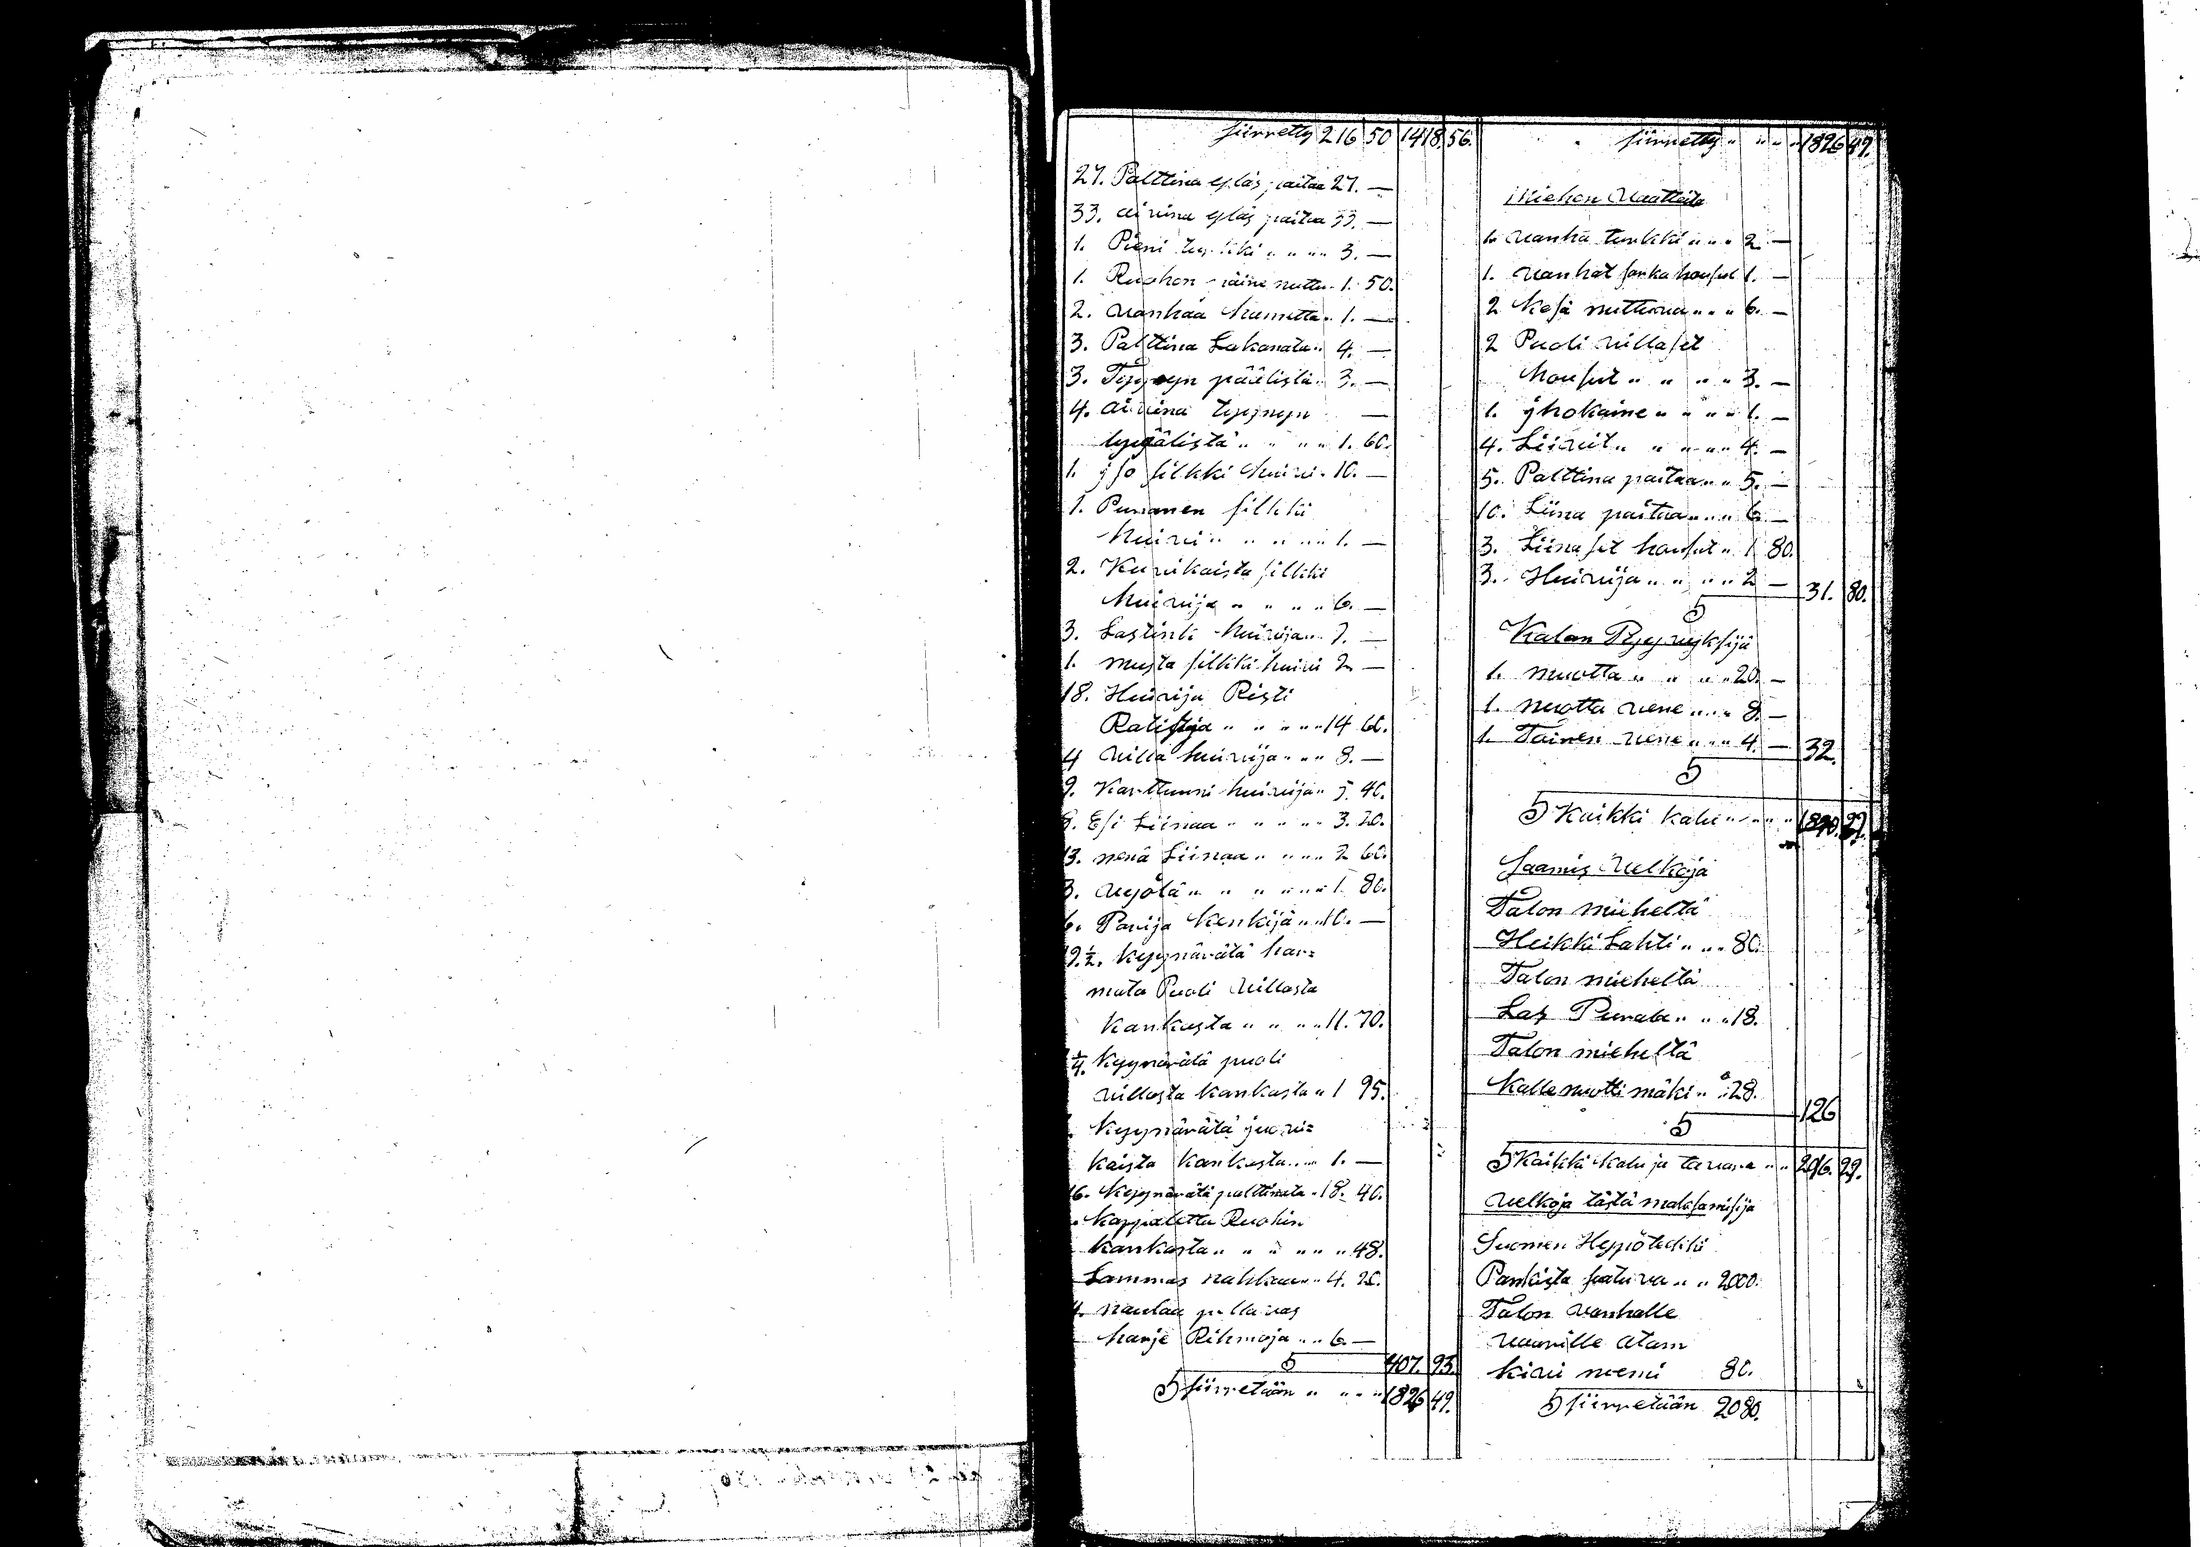 siirretty 216 50 1418. 56.
27. Palttina ylas paitaa 27. —
33. aivina ylas paitaa 33. —
1. Pieni turkki " " " " 3. —
1. Ruohon nuttu 1. 50.
2. vanhaa hametta " 1. —
3. Palttina Lakanata " 4. —
3. Tyynyn päälistä " 3. —
4. aivina tyynyn —
" " " " 1. 60.
1. jso silkki huivi " 10. —
1. Punanen silkki
huivi " " " " " 1. —
2. Kuvikaista silkki
huivija " " " " 6. —
3. Lastinki huivija " 7. —
1. musta silkki huivi 2 —
18. Huivija Risti
" " " " " 14 60.
4 villa huivija " " " 8. —
9. Karttuuni huivija " 5. 40.
8. Esi Liinaa " " " " " 3. 20.
13. nenä Liinaa " " " " 2 60.
3. vyötä " " " " " " 1. 80.
6. Parija Kenkijä " " 10. —
19. ½. Kyynärätä har=
mata Puoli villasta
Kankasta " " " " 11. 70.
¼. Kyynärätä puoli
villasta kankasta " 1 95.
Kyynärätä juovi=
kaista kankasta " " " 1. —
16. Kyynärätä palttinata " 18. 40.
Kappaletta Ruohin
kankasta " " " " " " 48.
Lammas nahkaa " " " 4. 20.
4. naulaa pellavas
harje Rihmoja " " 6 —
S 407. 93.
S siirretään " " " " 1826 49.
siirretty " " " " 1826 49.
Miehen Vaatteita
1. vanha turkki " " " 2 —
1. vanhat sarka housut 1. —
2 kesä nuttuua " " " 6. —
2 Puoli villaset
housut " " " " 3. —
1. jhokaine " " " " 1. —
4. Liivit " " " " " 4. —
5. Palttina paitaa " " 5. —
10. Liina paitaa " " " 6 —
3. Liinaset housut " 1 80.
3. Huivija " " " " 2 — 31. 80.
S
Kalan Pyyvyksijä
1. nuotta " " " " 20. —
1. nuotta vene " " " 8. —
1. Toinen vene " " " 4. — 32.
S
S Kaikki kalu " " " " 1890. 29.
Saamis velkoja
Talon mieheltä
Heikki Lahti " " " 80.
Talon mieheltä
Las " " " 18.
Talon mieheltä
Kalle nuotti mäki " " 28.
126
S
S Kaikki kalu ja tavara " " 2016. 29.
velkoja tästä maksamisija
Suomen Hyppötekki
Pankista " " 2000.
Talon vanhalle
vaarille atam
kivi niemi 80.
S siirretään 2080.